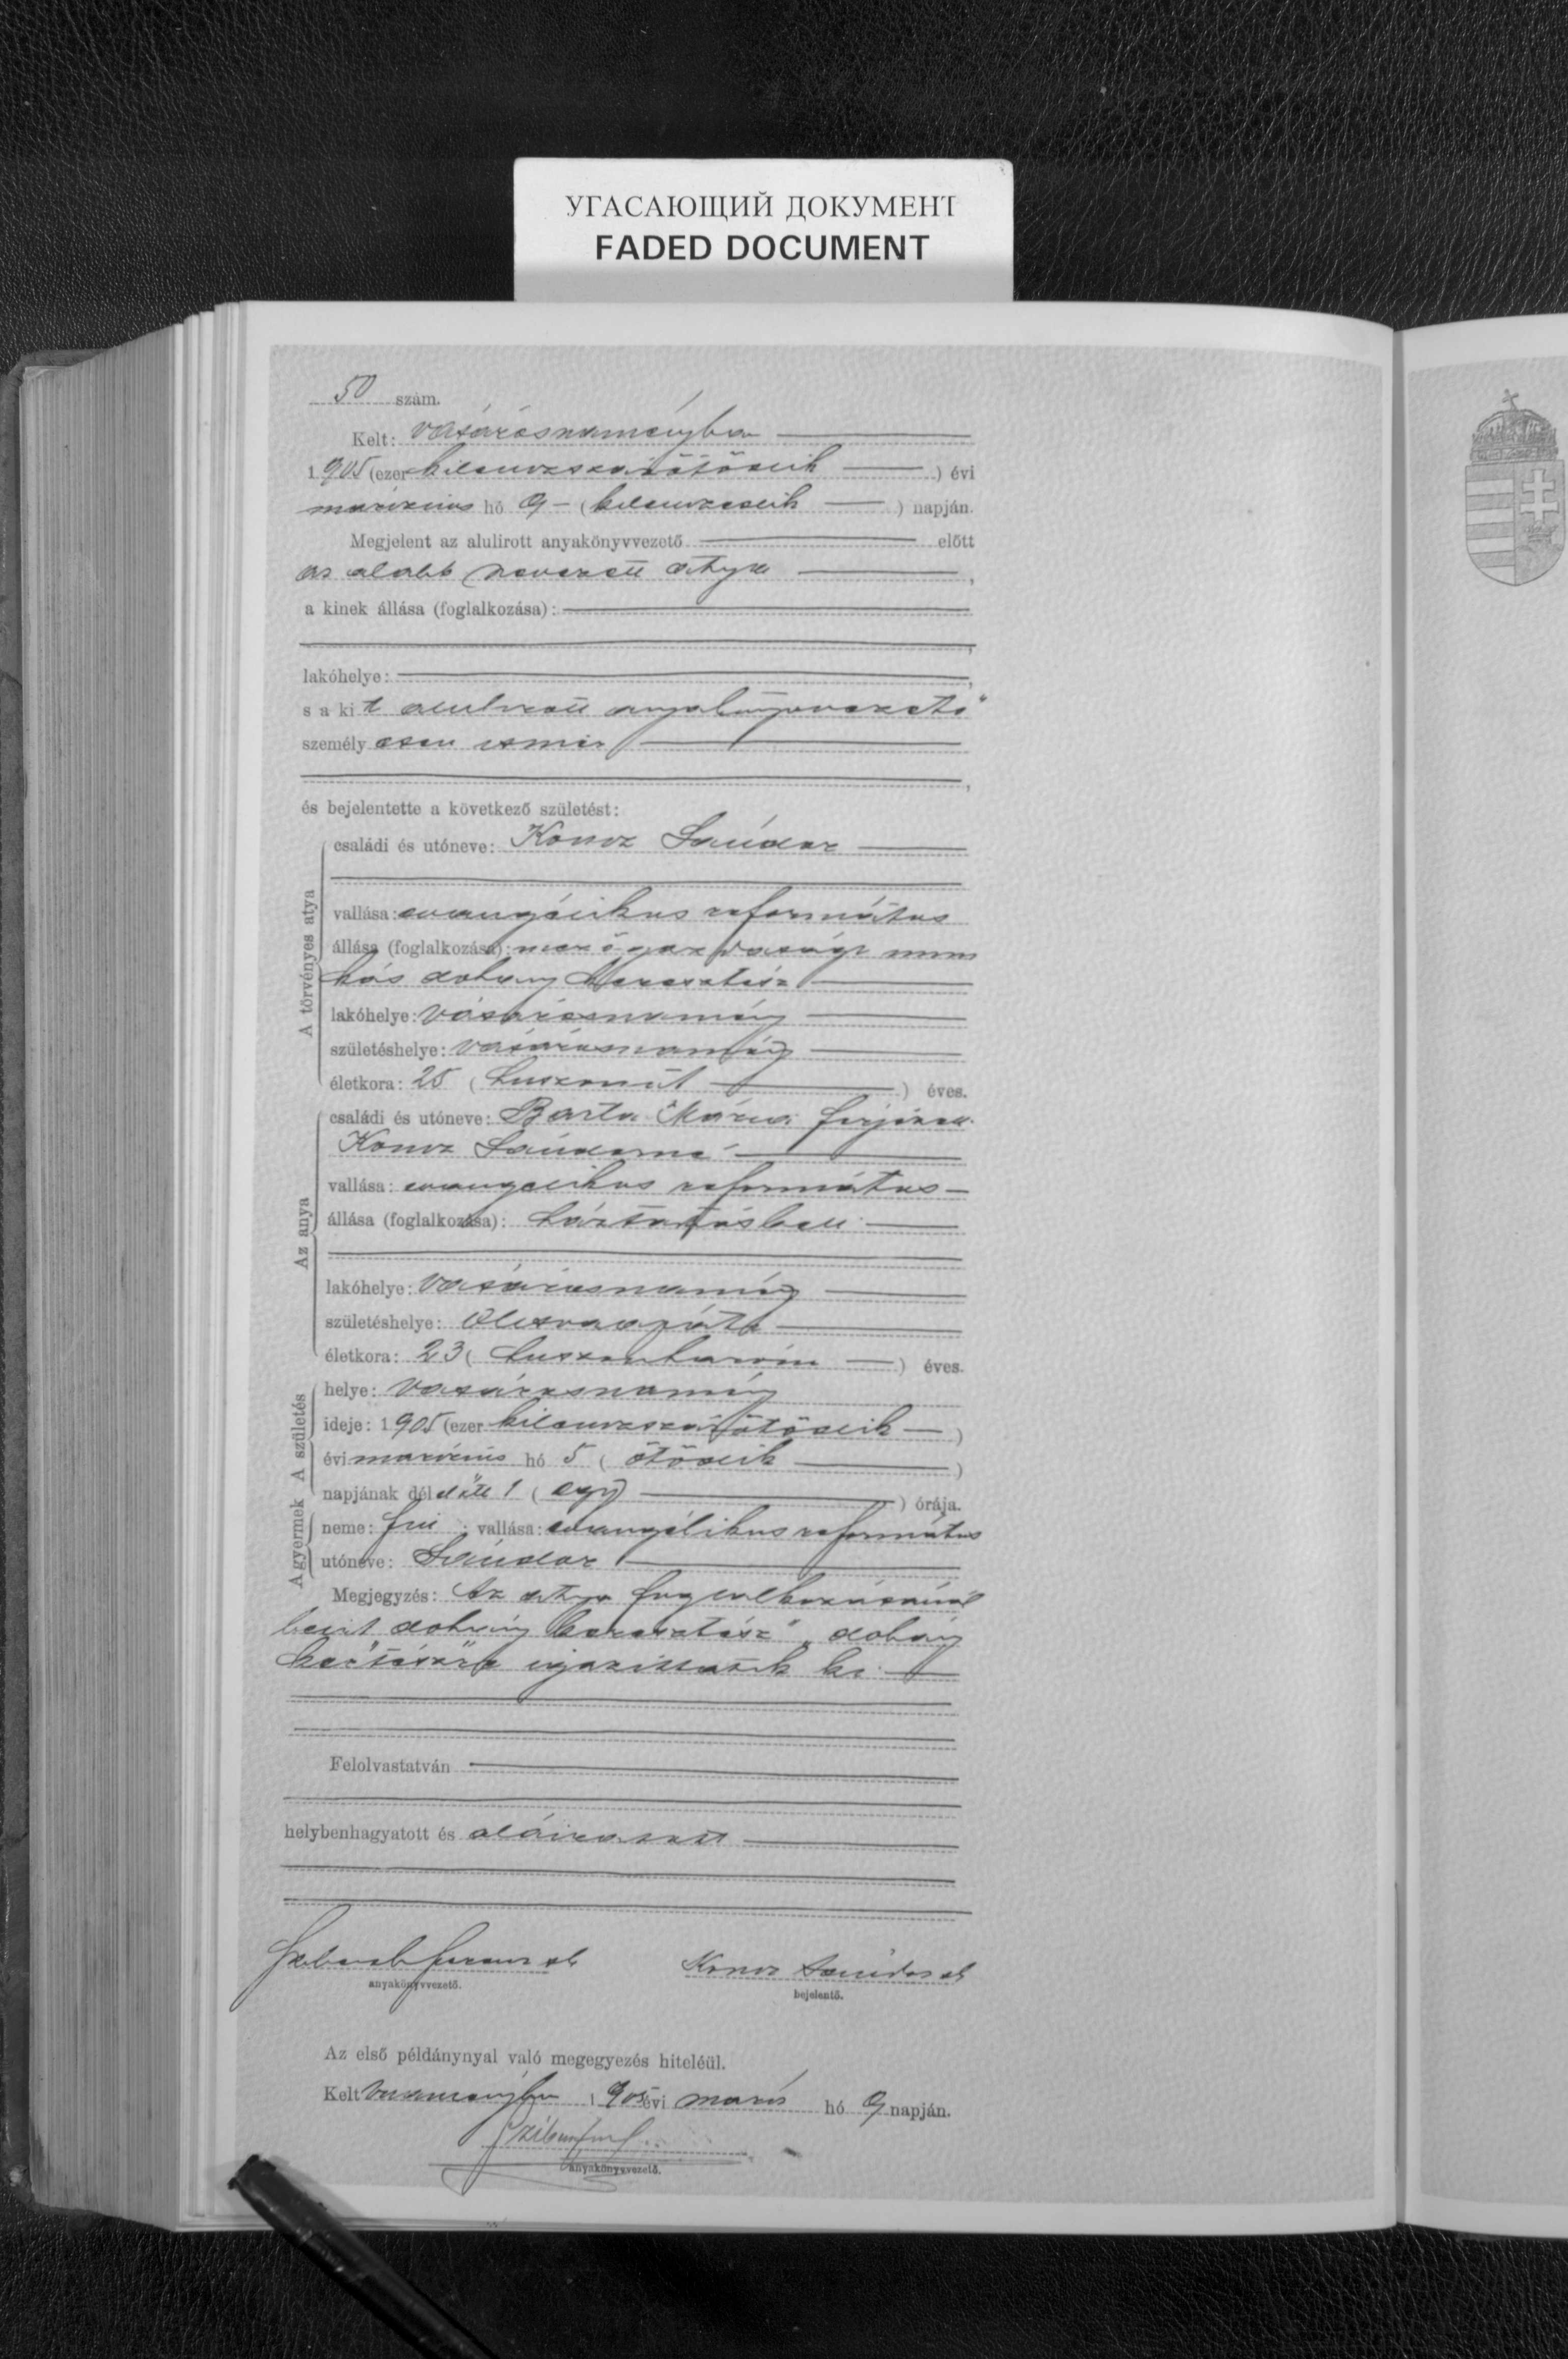 УГАСАЮЩИЙ ДОКУМЕНТ
FADED DOCUMENT
50 szám.
Kelt: Vásárosnaményba
1905 (ezer kilenczszázötödik) évi
márczius hó 9 (kilenczedik) napján.
Megjelent az alulirott anyakönyvvezető előtt
az alább nevezett atya,
a kinek állása (foglalkozása):
lakóhelye:
s a kit alulirott anyakönyvvezető
személyesen ismer
és bejelentette a következő születést:
A törvényes atya
családi és utóneve: Koncz Sándor
vallása: evangélikus református
állása (foglalkozása): mezőgazdasági mun
kás dohány
lakóhelye: Vásárosnamény
születéshelye: Vásárosnamény
életkora: 25 (huszonöt) éves.
Az anya
családi és utóneve: Barta Mária férjezett
Koncz Sándorné
vallása: evangelikus református
állása (foglalkozása): háztartásbeli
lakóhelye: Vásárosnamény
születéshelye: Olcsvaapáti
életkora: 23 (huszonhárom) éves.
A születés
helye: Vásárosnamény
ideje: 1905 (ezer kilenczszázötödik)
évi márczius hó 5 (ötödik)
napjának délelőtt 1 (egy) órája.
A gyermek
neme: fiú; vallása: evangélikus református
utóneve: Sándor
Megjegyzés: Az atya foglalkozásánál
beirt dohány "dohány
kertészre" igazittatik ki
Felolvastatván
helybenhagyatott és aláiratott
Ferencz sk
anyakönyvvezető.
Koncz Sándor sk
bejelentő.
Az első példánynyal való megegyezés hiteléül.
Kelt Vnaményba 1905 évi márcz hó 9 napján.
anyakönyvvezető.